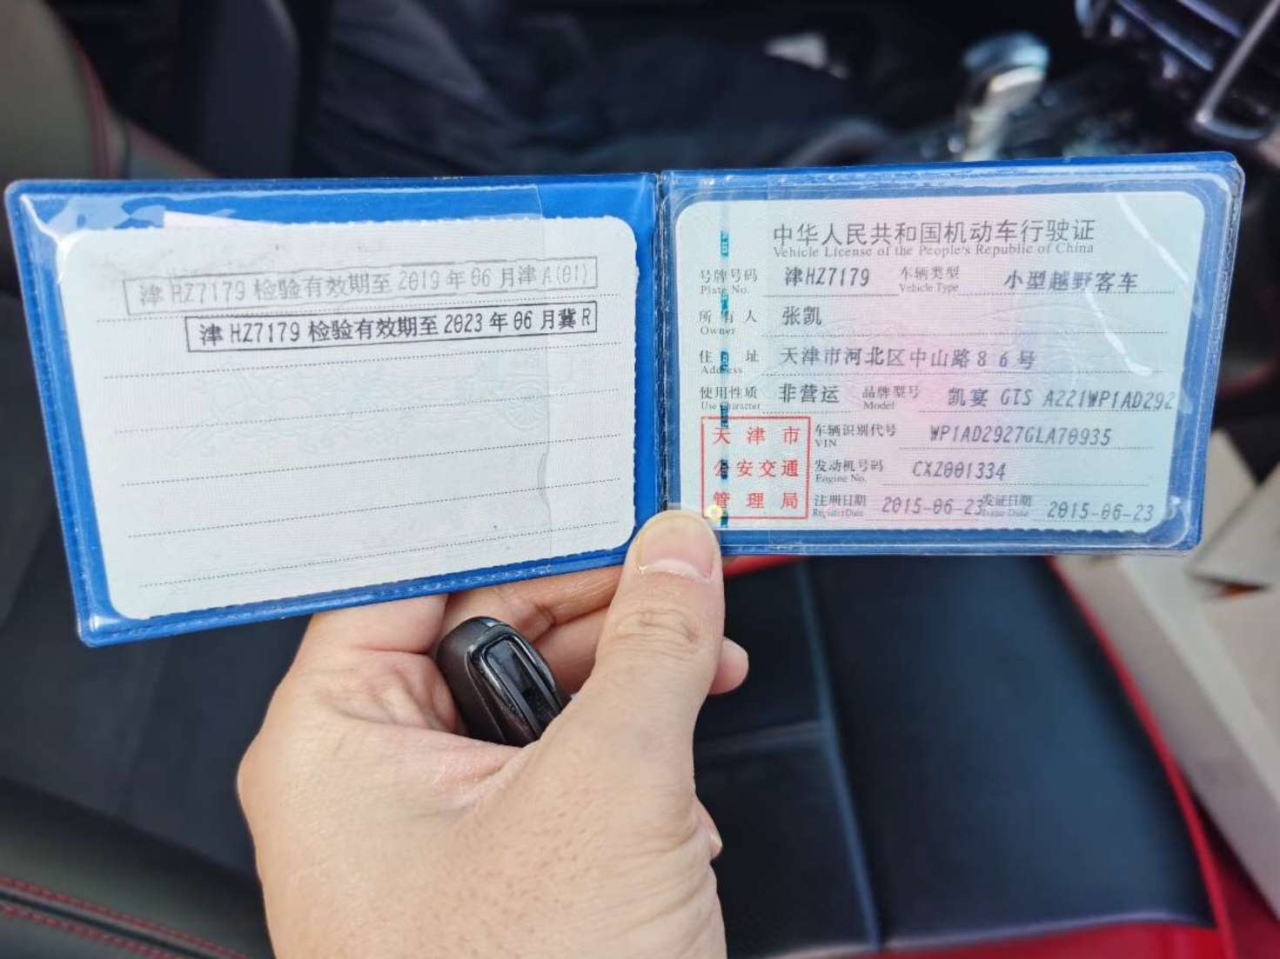 津HZ7179 检验有效期至 2019 年 06 月津 A(01)
津 HZ7179 检验有效期至 2023 年 06 月冀 R
中华人民共和国机动车行驶证
Vehicle License of the People's Republic of China
号牌号码 津HZ7179 车辆类型 小型越野客车
Plate No. Vehicle Type
所有人 张凯
Owner
住址 天津市河北区中山路86号
Address
使用性质 非营运 品牌型号 凯宴 GTS A221WP1AD292
Use Character Model
天津市
公安交通
管理局
车辆识别代号 WP1AD2927GLA70935
VIN
发动机号码 CXZ001334
Engine No.
注册日期 2015-06-23 发证日期 2015-06-23
Register Date Issue Date